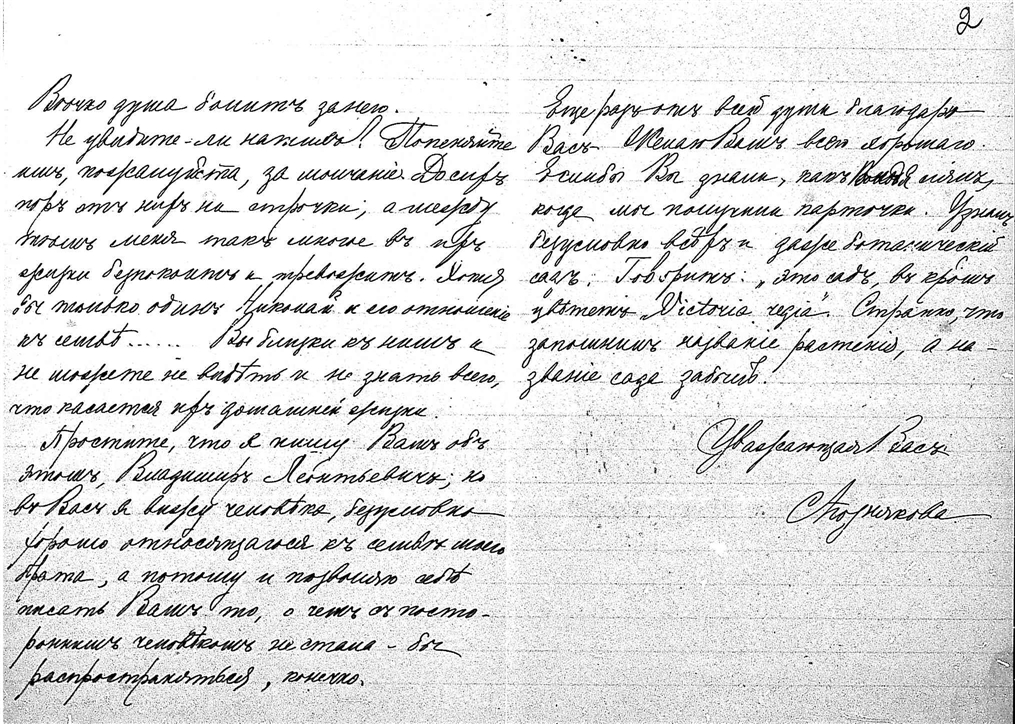 2
душа болитъ за него.
Не увидите-ли на живо! Попеняйте
имъ, пожалуйста, за молчаніе. До сихъ
поръ отъ нихъ ни строчки; а между
тѣмъ меня такъ многое въ ихъ
жизни безпокоитъ и тревожитъ. Хотя
бы только одинъ Николай и его отношеніе
къ семьѣ...... Вы близки къ нимъ и
не можете не видѣть и не знать всего,
что касается ихъ домашней жизни.
Простите, что я пишу Вамъ объ
этомъ, Владимиръ Леонтьевичъ; но
въ Васъ я вижу человѣка, безусловно
хорошо относящагося къ семьѣ моего
брата, а потому и позволяю себѣ
писать Вамъ то, о чемъ съ посто-
роннимъ человѣкомъ не стала-бы
распространяться, конечно.
Еще разъ отъ всей души благодарю
Васъ. Желаю Вамъ всего хорошаго.
Если бы Вы знали, какъ
когда мы получили карточки. Узналъ
безусловно всѣхъ и даже ботаническій
садъ. Говоритъ: „это садъ, въ кромъ
цвѣтетъ Victoria regia“. Странно, что
запомнилъ названіе растенія, а на-
званіе сада забылъ.
Уважающая Васъ
А Позднякова